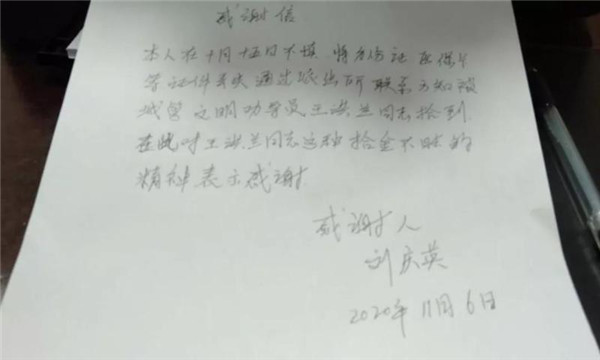 感谢信
本人在十月十五日不慎将身份证医保卡
等证件丢失通过派出所联系方知被
城管文明劝导员王洪兰同志拾到
在此对王洪兰同志这种拾金不昧的
精神表示感谢
感谢人
刘庆英
2020年11月6日